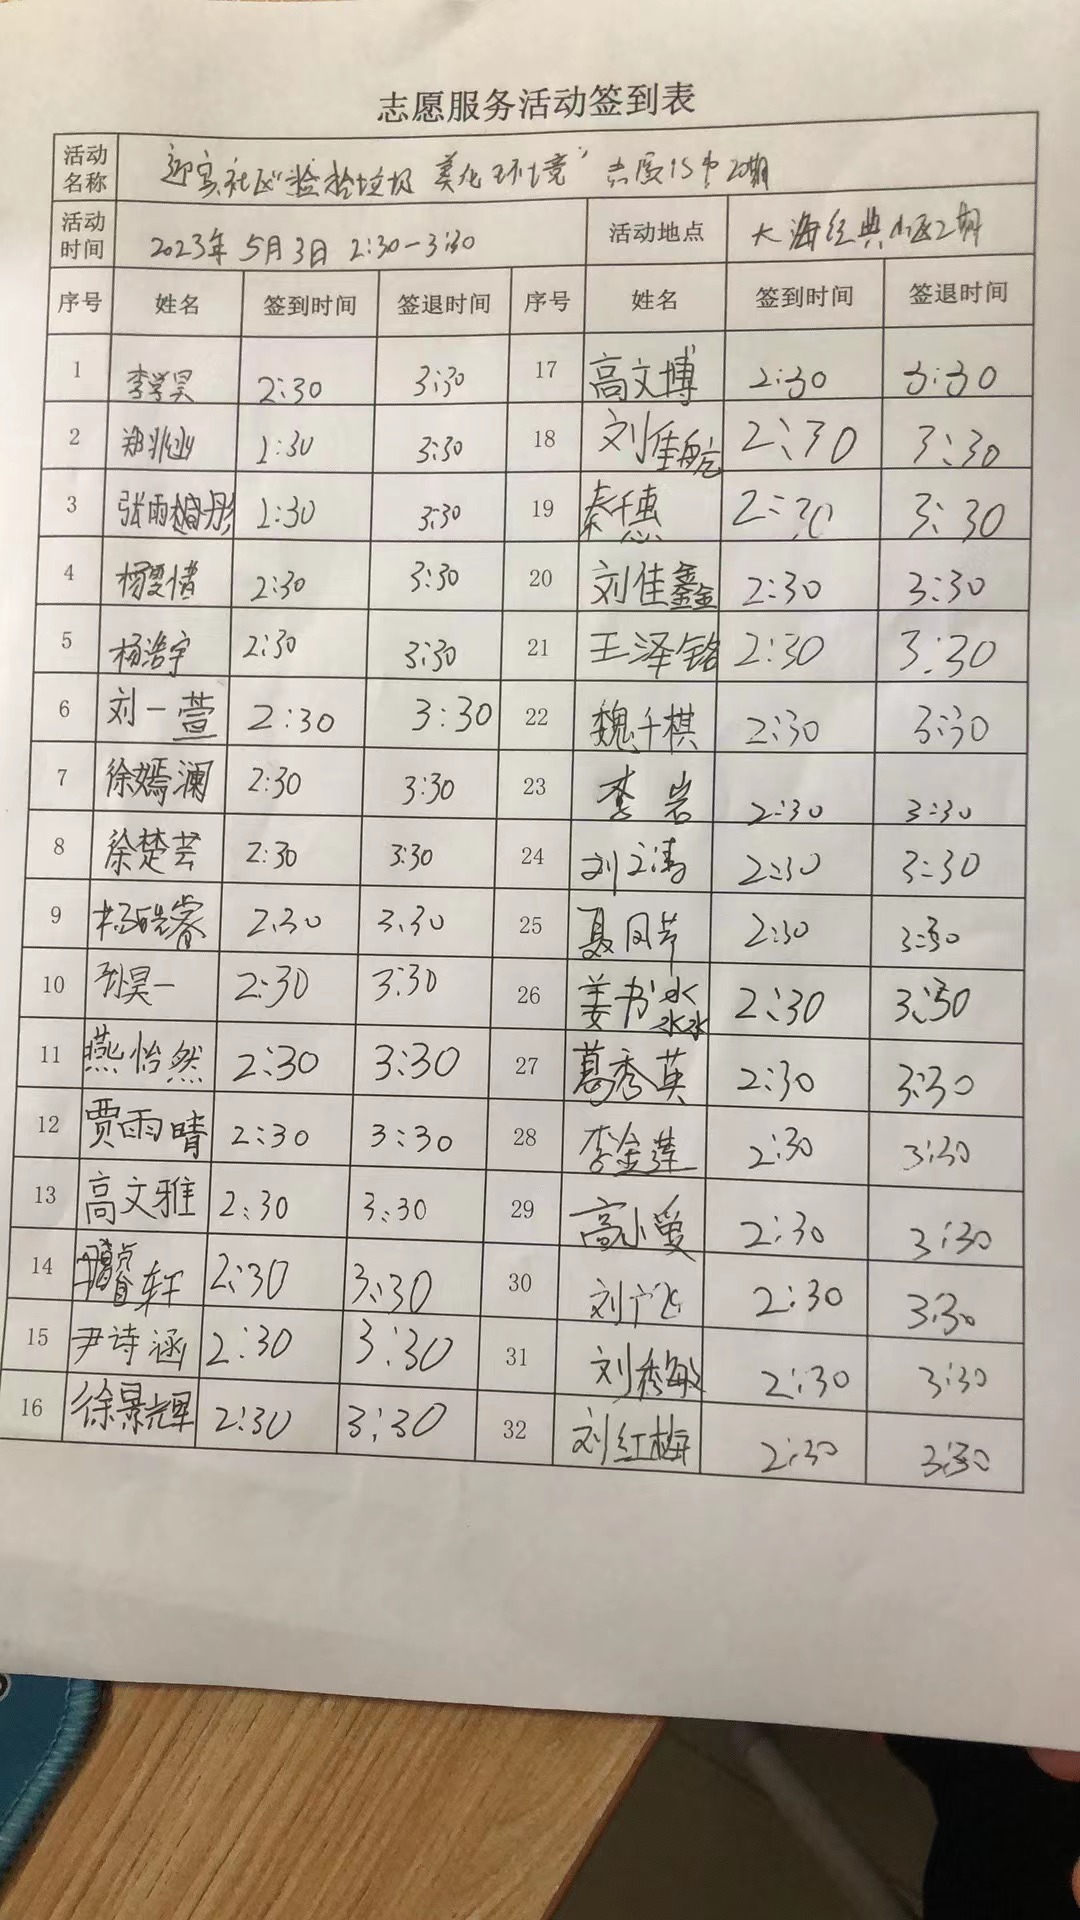 志愿服务活动签到表
活动名称 社区"捡拾垃圾 美化环境"
活动时间 2023年5月3日 2:30-3:30 活动地点 大海经典小区2期
序号 姓名 签到时间 签退时间 序号 姓名 签到时间 签退时间
1 李学昊 2:30 3:30 17 高文博 2:30 3:30
2 1:30 3:30 18 刘佳航 2:30 3:30
3 1:30 3:30 19 秦千惠 2:30 3:30
4 2:30 3:30 20 刘佳鑫 2:30 3:30
5 杨浩宇 2:30 3:30 21 王泽铭 2:30 3:30
6 刘一萱 2:30 3:30 22 魏千棋 2:30 3:30
7 徐嫣澜 2:30 3:30 23 李岩 2:30 3:30
8 徐楚芸 2:30 3:30 24 2:30 3:30
9 2:30 3:30 25 2:30 3:30
10 孙昊一 2:30 3:30 26 姜书淼 2:30 3:30
11 燕怡然 2:30 3:30 27 葛秀英 2:30 3:30
12 贾雨晴 2:30 3:30 28 李金莲 2:30 3:30
13 高文雅 2:30 3:30 29 高小爱 2:30 3:30
14 轩 2:30 3:30 30 刘广飞 2:30 3:30
15 尹诗涵 2:30 3:30 31 刘秀敏 2:30 3:30
16 徐景辉 2:30 3:30 32 刘红梅 2:30 3:30